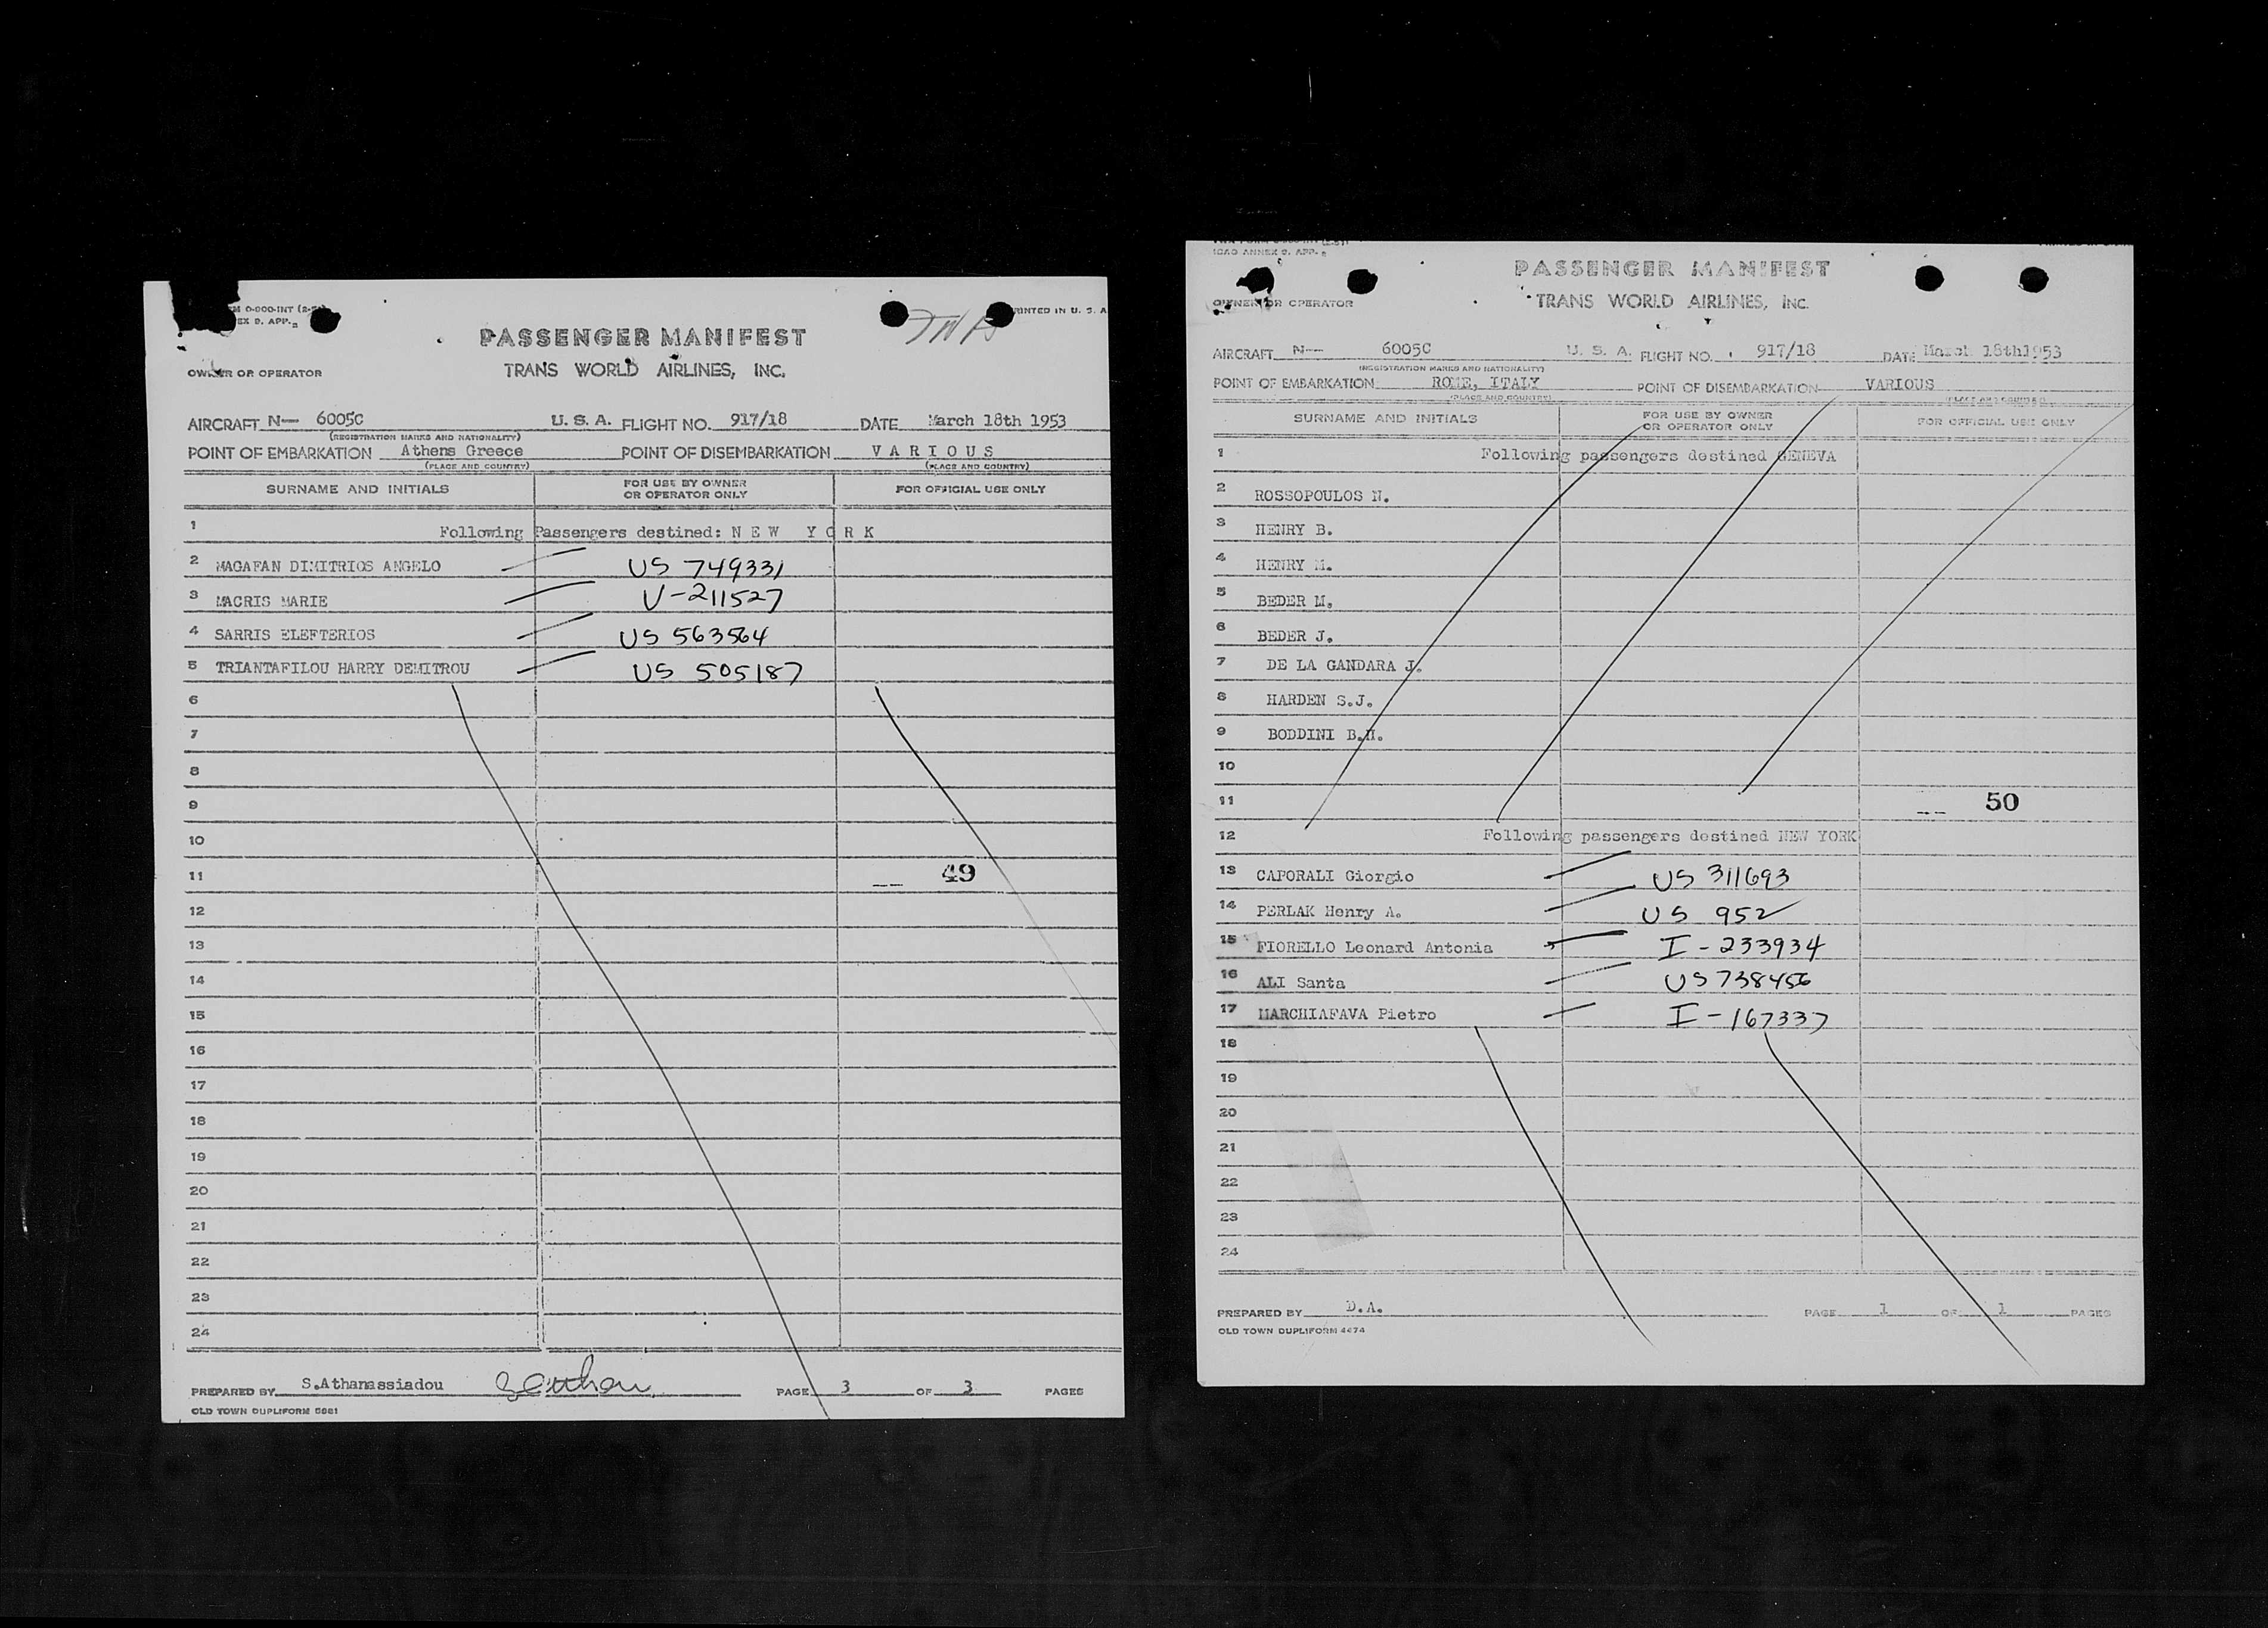 PASSENGER MANIFEST
TWA
PRINTED IN U. S. A
TRANS WORLD AIRLINES, INC.
OWNER OR OPERATOR
AIRCRAFT N— 6005C U. S. A. FLIGHT NO. 917/18 DATE March 18th 1953
(REGISTRATION MARKS AND NATIONALITY)
POINT OF EMBARKATION Athens Greece POINT OF DISEMBARKATION V A R I O U S
(PLACE AND COUNTRY) (PLACE AND COUNTRY)
SURNAME AND INITIALS FOR USE BY OWNER OR OPERATOR ONLY FOR OFFICIAL USE ONLY
1 Following Passengers destined: N E W Y O R K
2 MAGAFAN DIMITRIOS ANGELO US 749331
3 MACRIS MARIE V-211527
4 SARRIS ELEFTERIOS US 563564
5 TRIANTAFILOU HARRY DEMITROU US 505187
6
7
8
9
10
11 49
12
13
14
15
16
17
18
19
20
21
22
23
24
PREPARED BY S.Athanassiadou PAGE 3 OF 3 PAGES
OLD TOWN DUPLIFORM 5881
ICAO ANNEX 9. APP. 2
PASSENGER MANIFEST
OWNER OR OPERATOR
TRANS WORLD AIRLINES, INC.
AIRCRAFT N— 6005C U. S. A. FLIGHT NO. 917/18 DATE March 18th1953
(REGISTRATION MARKS AND NATIONALITY)
POINT OF EMBARKATION ROME, ITALY POINT OF DISEMBARKATION VARIOUS
(PLACE AND COUNTRY) (PLACE AND COUNTRY)
SURNAME AND INITIALS FOR USE BY OWNER OR OPERATOR ONLY FOR OFFICIAL USE ONLY
1 Following passengers destined GENEVA
2 ROSSOPOULOS N.
3 HENRY B.
4 HENRY M.
5 BEDER M.
6 BEDER J.
7 DE LA GANDARA J.
8 HARDEN S.J.
9 BODDINI B.H.
10
11 50
12 Following passengers destined NEW YORK
13 CAPORALI Giorgio US 311693
14 PERLAK Henry A. US 952
15 FIORELLO Leonard Antonia I-233934
16 ALI Santa US 738456
17 MARCHIAFAVA Pietro I-167337
18
19
20
21
22
23
24
PREPARED BY D.A. PAGE 1 OF 1 PAGES
OLD TOWN DUPLIFORM 4474